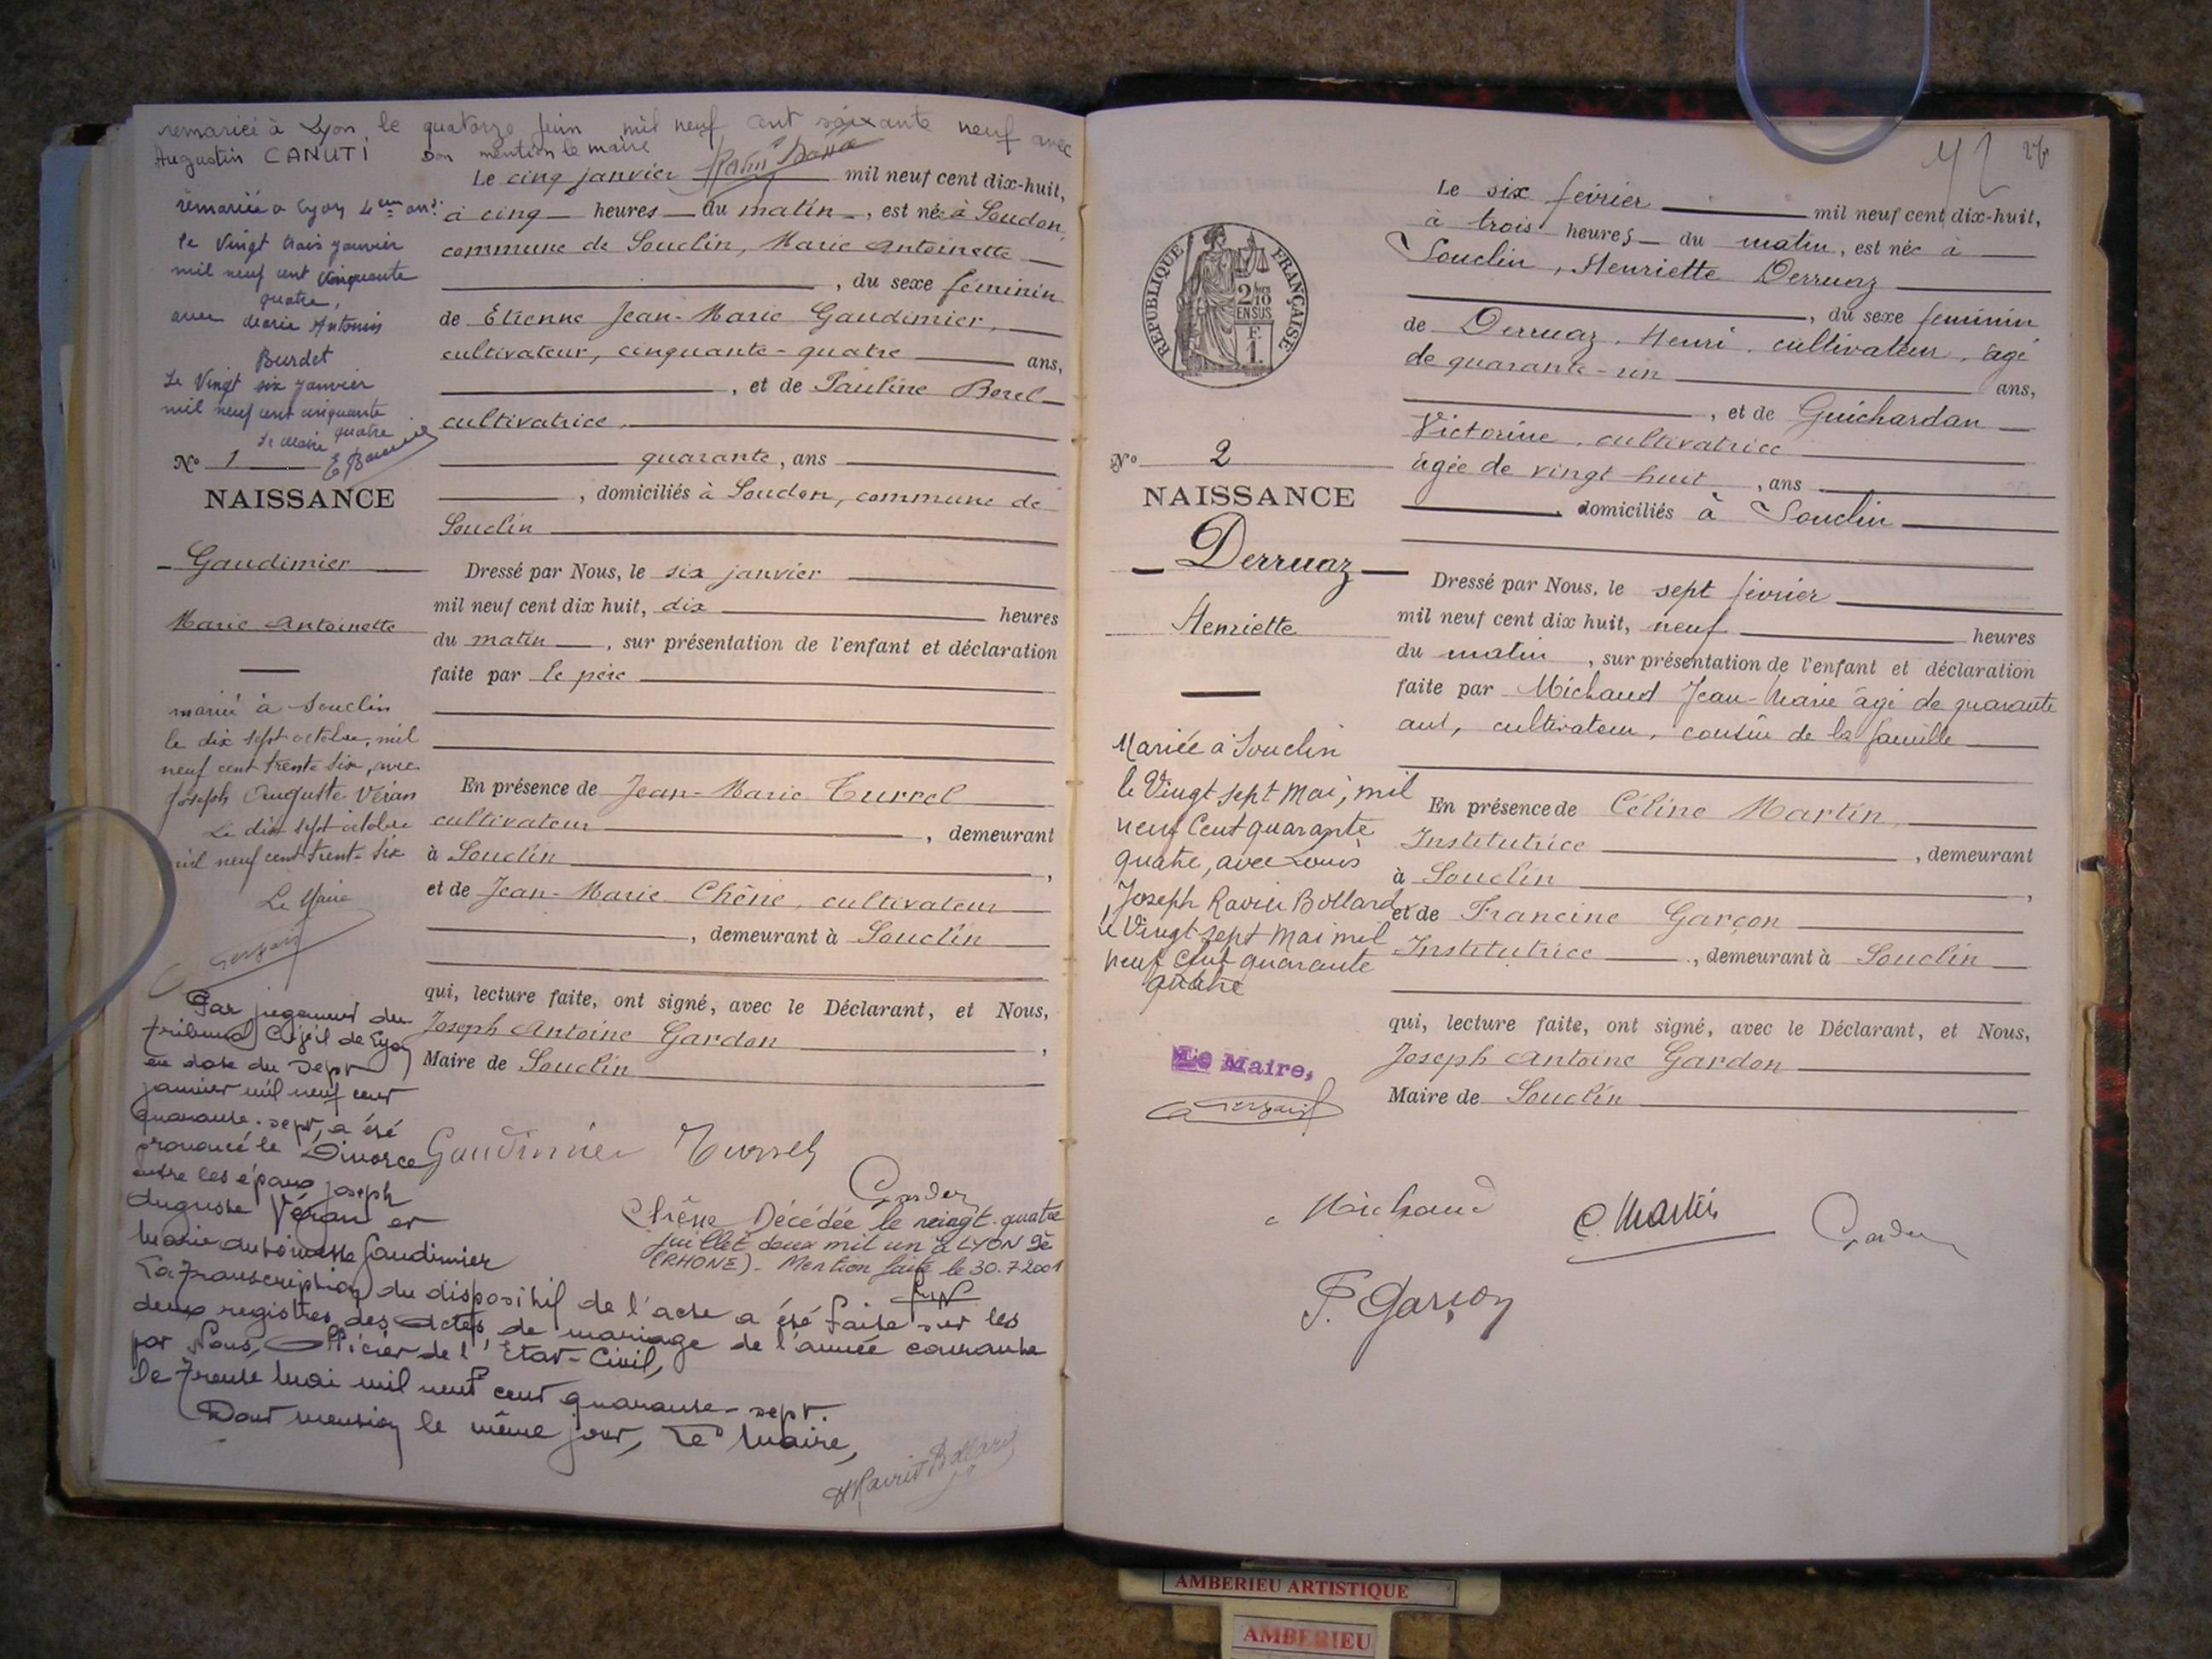 remariée à Lyon, le quatorze juin mil neuf cent soixante neuf avec
Augustin CANUTI Don mention le maire
remariée a Lyon 4eme arrt
le Vingt trois janvier
mil neuf cent cinquante
quatre,
avec Marie Antonin
Burdet
Le Vingt six janvier
mil neuf cent cinquante
quatre
Le Maire
No 1
NAISSANCE
Gaudimier
Marie Antoinette
marié à Souclin
le dix sept octobre, mil
neuf cent trente six, avec
Joseph Auguste Véran
Le dix sept octobre
mil neuf cent trente six
Le Maire
Par jugement du
tribunal Civil de Lyon
en date du Sept
janvier mil neuf cent
quarante-sept, a été
prononcé le Divorce
entre les époux Joseph
Auguste Véran et
Marie Antoinette Gaudimier
La transcription du dispositif de l'acte a été faite sur les
deux registres des actes de mariage de l'année courante
par Nous, Officier de l'Etat-Civil,
Le trente Mai mil neuf cent quarante-sept.
Dont mention le même jour, Le Maire,
Le cinq janvier mil neuf cent dix-huit,
à cinq heures du matin, est née à Soudon,
commune de Souclin, Marie Antoinette
, du sexe féminin
de Etienne Jean-Marie Gaudimier,
cultivateur, cinquante-quatre ans,
, et de Pauline Borel
cultivatrice,
quarante, ans
, domiciliés à Soudon, commune de
Souclin
Dressé par Nous, le six janvier
mil neuf cent dix huit, dix heures
du matin, sur présentation de l'enfant et déclaration
faite par le père
En présence de Jean-Marie Turrel
cultivateur, demeurant
à Souclin,
et de Jean-Marie Chêne, cultivateur
, demeurant à Souclin
qui, lecture faite, ont signé, avec le Déclarant, et Nous,
Joseph Antoine Gardon,
Maire de Souclin
Gaudimier Turrel
Gardon
Chêne Décédée le vingt-quatre
juillet deux mil un à LYON 9è
(RHONE). Mention faite le 30.7.2001
RÉPUBLIQUE FRANÇAISE
2/10
EN SUS
F.
1.
No 2
NAISSANCE
Derruaz
Henriette
Mariée à Souclin
le Vingt sept Mai, mil
neuf Cent quarante
quatre, avec Louis
Joseph Ravier Bollard
le Vingt sept Mai mil
neuf Cent quarante
quatre
Le Maire,
Le six février mil neuf cent dix-huit,
à trois heures du matin, est née à
Souclin, Henriette Derruaz
, du sexe féminin
de Derruaz, Henri, cultivateur, âgé
de quarante-un ans,
, et de Guichardan
Victorine, cultivatrice
âgée de vingt huit, ans
, domiciliés à Souclin
Dressé par Nous, le sept février
mil neuf cent dix huit, neuf heures
du matin, sur présentation de l'enfant et déclaration
faite par Michaud Jean-Marie âgé de quarante
ans, cultivateur, cousin de la famille
En présence de Céline Martin,
Institutrice, demeurant
à Souclin,
et de Francine Garçon
Institutrice, demeurant à Souclin
qui, lecture faite, ont signé, avec le Déclarant, et Nous,
Joseph Antoine Gardon
Maire de Souclin
Michaud C. Martin Gardon
F. Garçon
AMBERIEU ARTISTIQUE
AMBERIEU